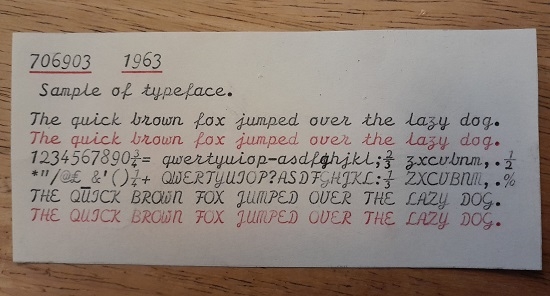 706903 1963
Sample of typeface.
The quick brown fox jumped over the lazy dog.
The quick brown fox jumped over the lazy dog.
1234567890¾= qwertyuiop-asdfghjkl;⅔ zxcvbnm,.½
*"/@£_&'()¼+ QWERTYUIOP?ASDFGHJKL:⅓ ZXCVBNM,.%
THE QUICK BROWN FOX JUMPED OVER THE LAZY DOG.
THE QUICK BROWN FOX JUMPED OVER THE LAZY DOG.